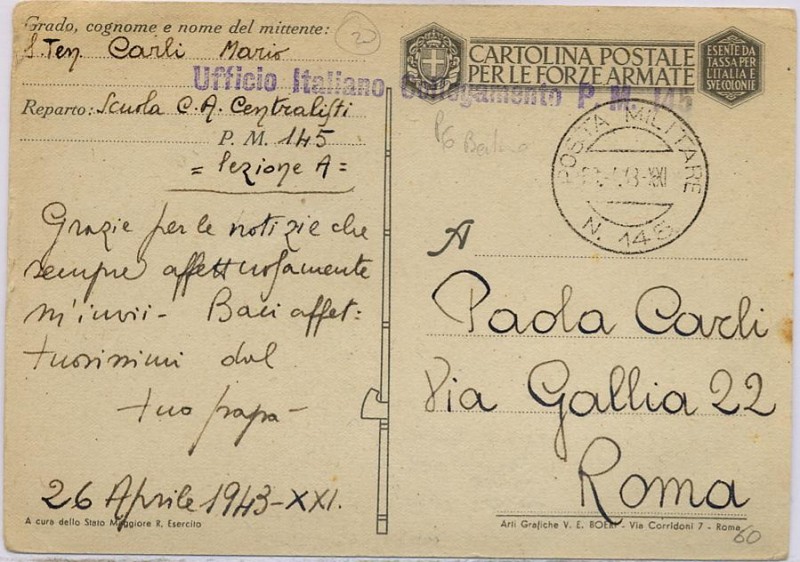 Grado, cognome e nome del mittente:
S. Ten. Carli Mario
Ufficio Italiano Collegamento P. M. 145
Reparto: Scuola C. A. Centralisti
P. M. 145
= Sezione A =
Grazie per le notizie che
sempre affettuosamente
m'invii - Baci affet:
tuosissimi dal
tuo papa -
26 Aprile 1943-XXI.
A cura dello Stato Maggiore R. Esercito
20
CARTOLINA POSTALE
PER LE FORZE ARMATE
ESENTE DA
TASSA PER
L'ITALIA E
SVE COLONIE
POSTA MILITARE
43-XXI
N. 148
A
Paola Carli
Via Gallia 22
Roma
Arti Grafiche V. E. BOERI - Via Corridoni 7 - Roma
60